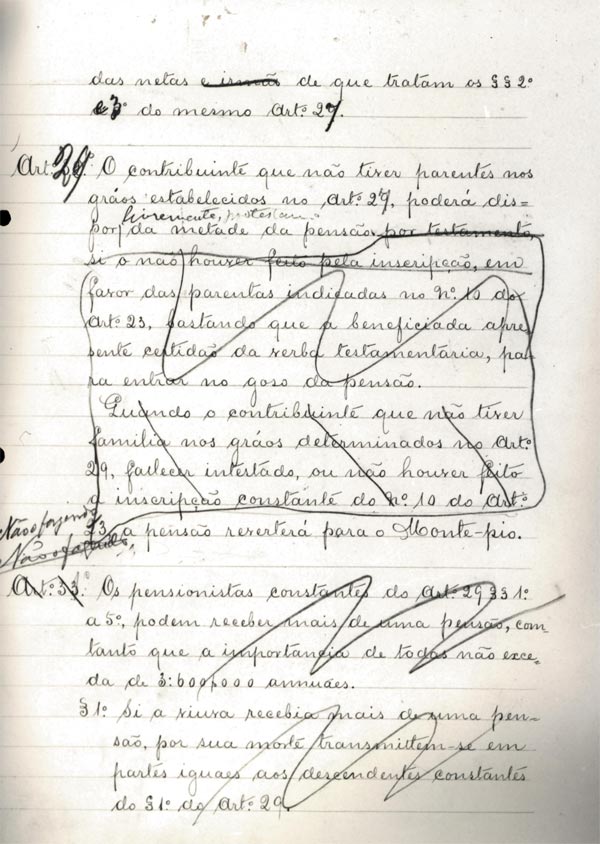 das netas e irmãs de que tratam os §§ 2º
e 3º do mesmo Artº 27.
Artº 29º. O contribuinte que não tiver parentes nos
gráos estabelecidos no Artº 27, poderá dis-
livremente, por testam.
pôr da metade da pensão por testamento,
si o não houver feito pela inscripção, em
favor das parentas indicadas no nº 10 do
Artº 23, bastando que a beneficiada apre-
sente certidão da verba testamentaria, pa-
ra entrar no goso da pensão.
Quando o contribuinte que não tiver
familia nos gráos determinados no Artº
29, fallecer intestado, ou não houver feito
a inscripção constante do nº 10 do Artº
Não o fazendo
23, a pensão reverterá para o Monte-pio.
Não o fazendo,
Artº 33. Os pensionistas constantes do Artº 29 §§ 1º
a 5º, podem receber mais de uma pensão, com
tanto que a importancia de todas não exce-
da de 3:600,000 annuáes.
§ 1º Si a viuva recebia mais de uma pen-
são, por sua morte transmittem-se em
partes iguaes aos descendentes constantes
do § 1º do Artº 29.